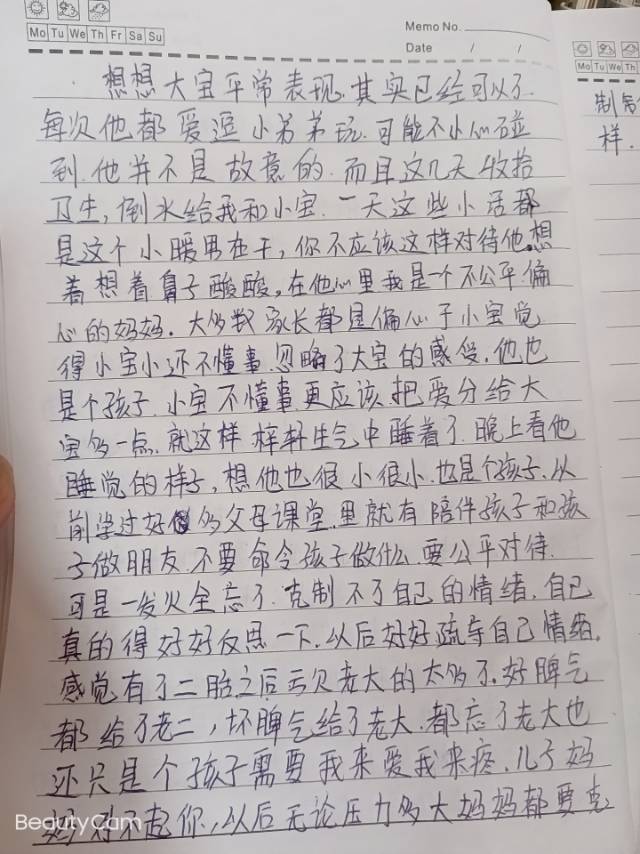 Memo No.
Mo Tu We Th Fr Sa Su
Date / /
想想大宝平常表现.其实已经可以了.
每次他都爱逗小弟弟玩.可能不小心碰
到.他并不是故意的.而且这几天收拾
卫生,倒水给我和小宝.一天这些小活都
是这个小暖男在干,你不应该这样对待他.想
着想着鼻子酸酸,在他心里我是一个不公平.偏
心的妈妈.大多数家长都是偏心于小宝觉
得小宝小还不懂事.忽略了大宝的感受.他也
是个孩子.小宝不懂事.更应该把爱分给大
宝多一点.就这样梓轩生气中睡着了.晚上看他
睡觉的样子,想他也很小很小.也是个孩子.从
前学过好多父母课堂.里就有陪伴孩子和孩
子做朋友.不要命令孩子做什么.要公平对待.
可是一发火全忘了.克制不了自己的情绪.自己
真的得好好反思一下.以后好好疏导自己情绪.
感觉有了二胎之后亏欠老大的太多了.好脾气
都给了老二,坏脾气给了老大.都忘了老大也
还只是个孩子需要我来爱我来疼.儿子妈
妈对不起你,以后无论压力多大妈妈都要克
BeautyCam
Mo Tu We Th
制
样.